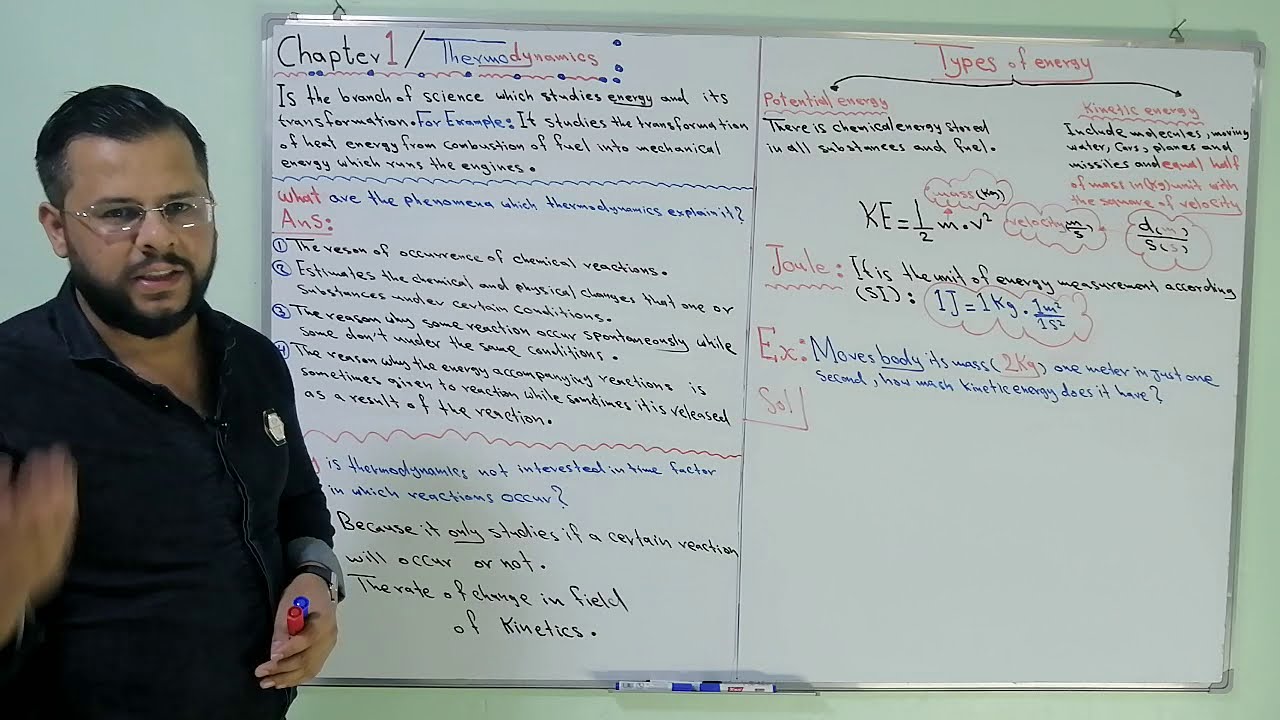 Chapter 1 / Thermodynamics :
Is the branch of science which studies energy and its
transformation. For Example: It studies the transformation
of heat energy from combustion of fuel into mechanical
energy which runs the engines.
What are the phenomena which thermodynamics explain it?
Ans:
① The reson of occurrence of chemical reactions.
② Estimates the chemical and physical changes that one or
Substances under certain conditions.
③ The reason why some reaction occur spontaneously while
some don't under the same conditions.
④ The reason why the energy accompanying reactions is
sometimes given to reaction while somdimes it is released
as a result of the reaction.
is thermodynamics not interested in time factor
in which reactions occur?
Because it only studies if a certain reaction
will occur or not.
The rate of change in field
of Kinetics.
Types of energy
Potential energy
There is chemical energy stored
in all substances and fuel.
Kinetic energy
Include molecules, moving
water, Cars, planes and
missiles and equal half
of mass in (Kg) unit with
the square of velocity
mass (Kg)
KE = 1/2 m . v²
velocity m/s
d(m)/S(s)
Joule: It is the unit of energy measurement according
(SI): 1J = 1 Kg . 1m²/1s²
Ex: Moves body its mass (2Kg) one meter in just one
second, how mach kinetic energy does it have?
Sol